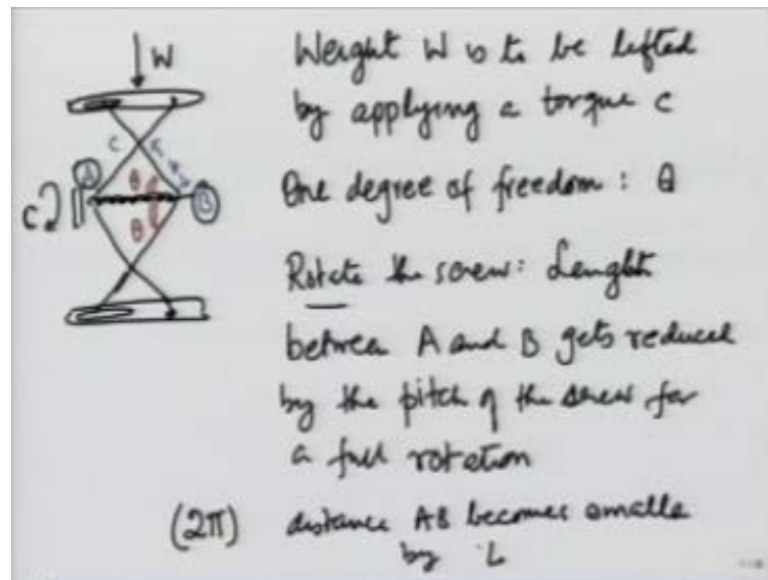 W
Weight W is to be lifted
by applying a torque C
C
A
θ
B
C
θ
One degree of freedom : θ
Rotate the screw: Lenght
between A and B gets reduced
by the pitch of the screw for
a full rotation
(2π) distance AB becomes smalle
by L